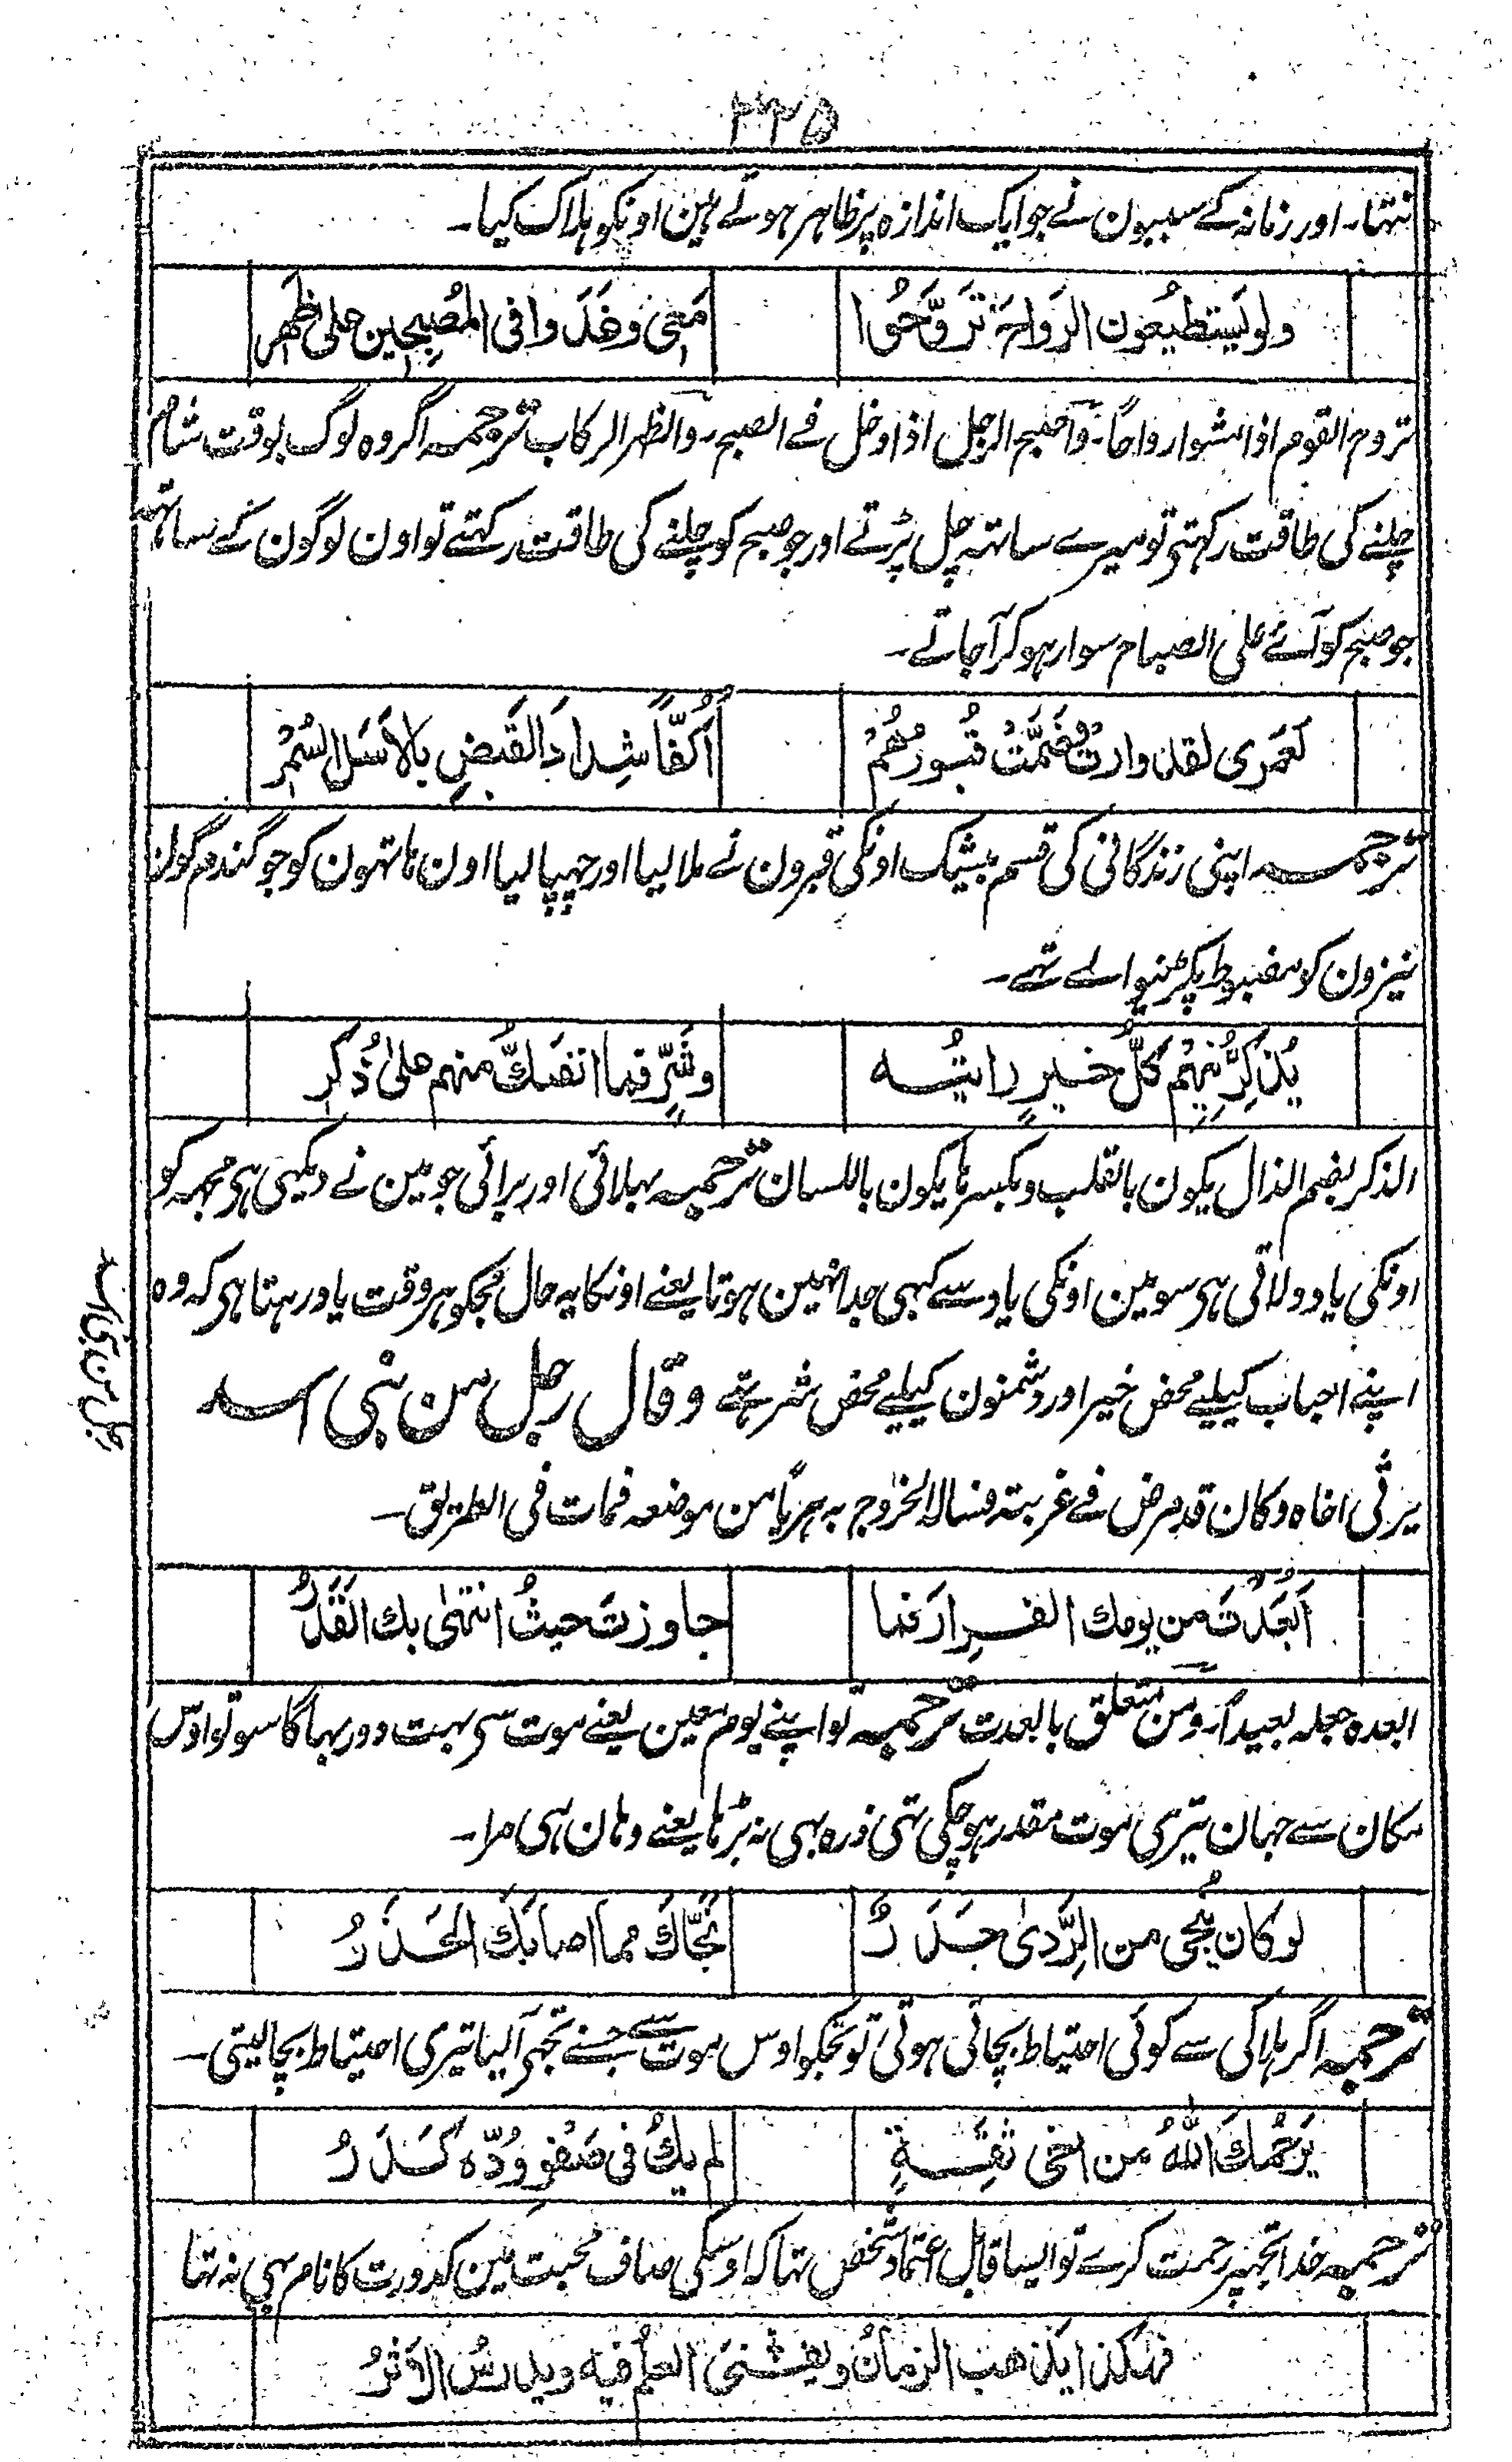 ۳۳۵
نتھا۔ اور زمانہ کے سببون نے جو ایک اندازہ پر ظاہر ہوتے ہین اونکو ہلاک کیا۔
ولو یستطیعون الرواحَ تَروَّحُوا مَعِی وغَدَوا فی المُصبِحین علی ظَهرِ
تروح القوم اذا مشوا رواحًا۔ واصبح الرجل اذا دخل فے الصبح۔ والظہر الرکاب ترجمہ اگر وہ لوگ بوقت شام
چلنے کی طاقت رکہتی تو میرے ساتہہ چل پڑتے اور جو صبح کو چلنے کی طاقت رکہتے تو اون لوگون کے ساتہہ
جو صبح کو آئے علی الصباح سوار ہو کر آجاتے۔
لَعَمری لقد وارتْ وضَمَّتْ قُبورُهُمْ اَکُفًّا شِدادَ القَبضِ بِالاَسَلِ السُّمْرِ
ترجمہ اپنی زندگانی کی قسم بیشک اونکی قبرون نے ملا لیا اور چہپا لیا اون ہاتہون کو جو گندم گون
نیزون کو مضبوط پکڑنیوالے تہے۔
یُذَکِّرُنِیهِم کُلُّ خیرٍ رایتُه وشَرٍّ فما انفَکُّ منهم علیٰ ذُکرِ
الذکر بضم الذال یکون بالقلب وبکسرہا یکون باللسان ترجمہ بہلائی اور برائی جو مین نے دیکہی ہی مجہہ کو
اونکی یاد دولاتی ہی سو مین اونکی یاد سے کبہی جدا نہین ہوتا یعنے اونکا یہ حال مجکو ہر وقت یاد رہتا ہی کہ وہ
اپنے احباب کیلیے محض خیر اور دشمنون کیلیے محض شر تہے وقال رجل من بنی اسد
رجل من بنی اسد
یرثی اخاہ وکان قد مرض فے غربتہ فسالہ الخروج بہ ہربًا من موضعہ فمات فی الطریق۔
اَبعَدْتَ من یومك الفِرارَ فما جاوزتَ حیثُ انتهیٰ بك القَدَرُ
ابعدہ جعلہ بعیدًا۔ ومن متعلق بابعدت ترجمہ تو اپنے یوم معین یعنے موت سی بہت دور بہاگا سو تو اوس
مکان سے جہان تیری موت مقدر ہو چکی تہی ذرہ بہی نہ بڑہا یعنے وہان ہی مرا۔
لو کان یُنجی من الرَّدیٰ حَذَرٌ نَجَّاكَ مما اصابَكَ الحَذَرُ
ترجمہ اگر ہلاکی سے کوئی احتیاط بچاتی ہوتی تو تجکو اوس موت سے جسنے تجہی آلیا تیری احتیاط بچالیتی۔
یَرحَمُكَ اللّٰهُ من اخی ثِقَةٍ لم یكُ فی صَفوِ وُدِّه کَدَرُ
ترجمہ خدا تجہپر رحمت کرے تو ایسا قابل اعتماد شخص تہا کہ اوسکی صاف محبت مین کدورت کا نام بہی نہ تہا
فهکذا یذهب الزمانُ ویفنی العلمُ فیه ویدرسُ الاَثَرُ